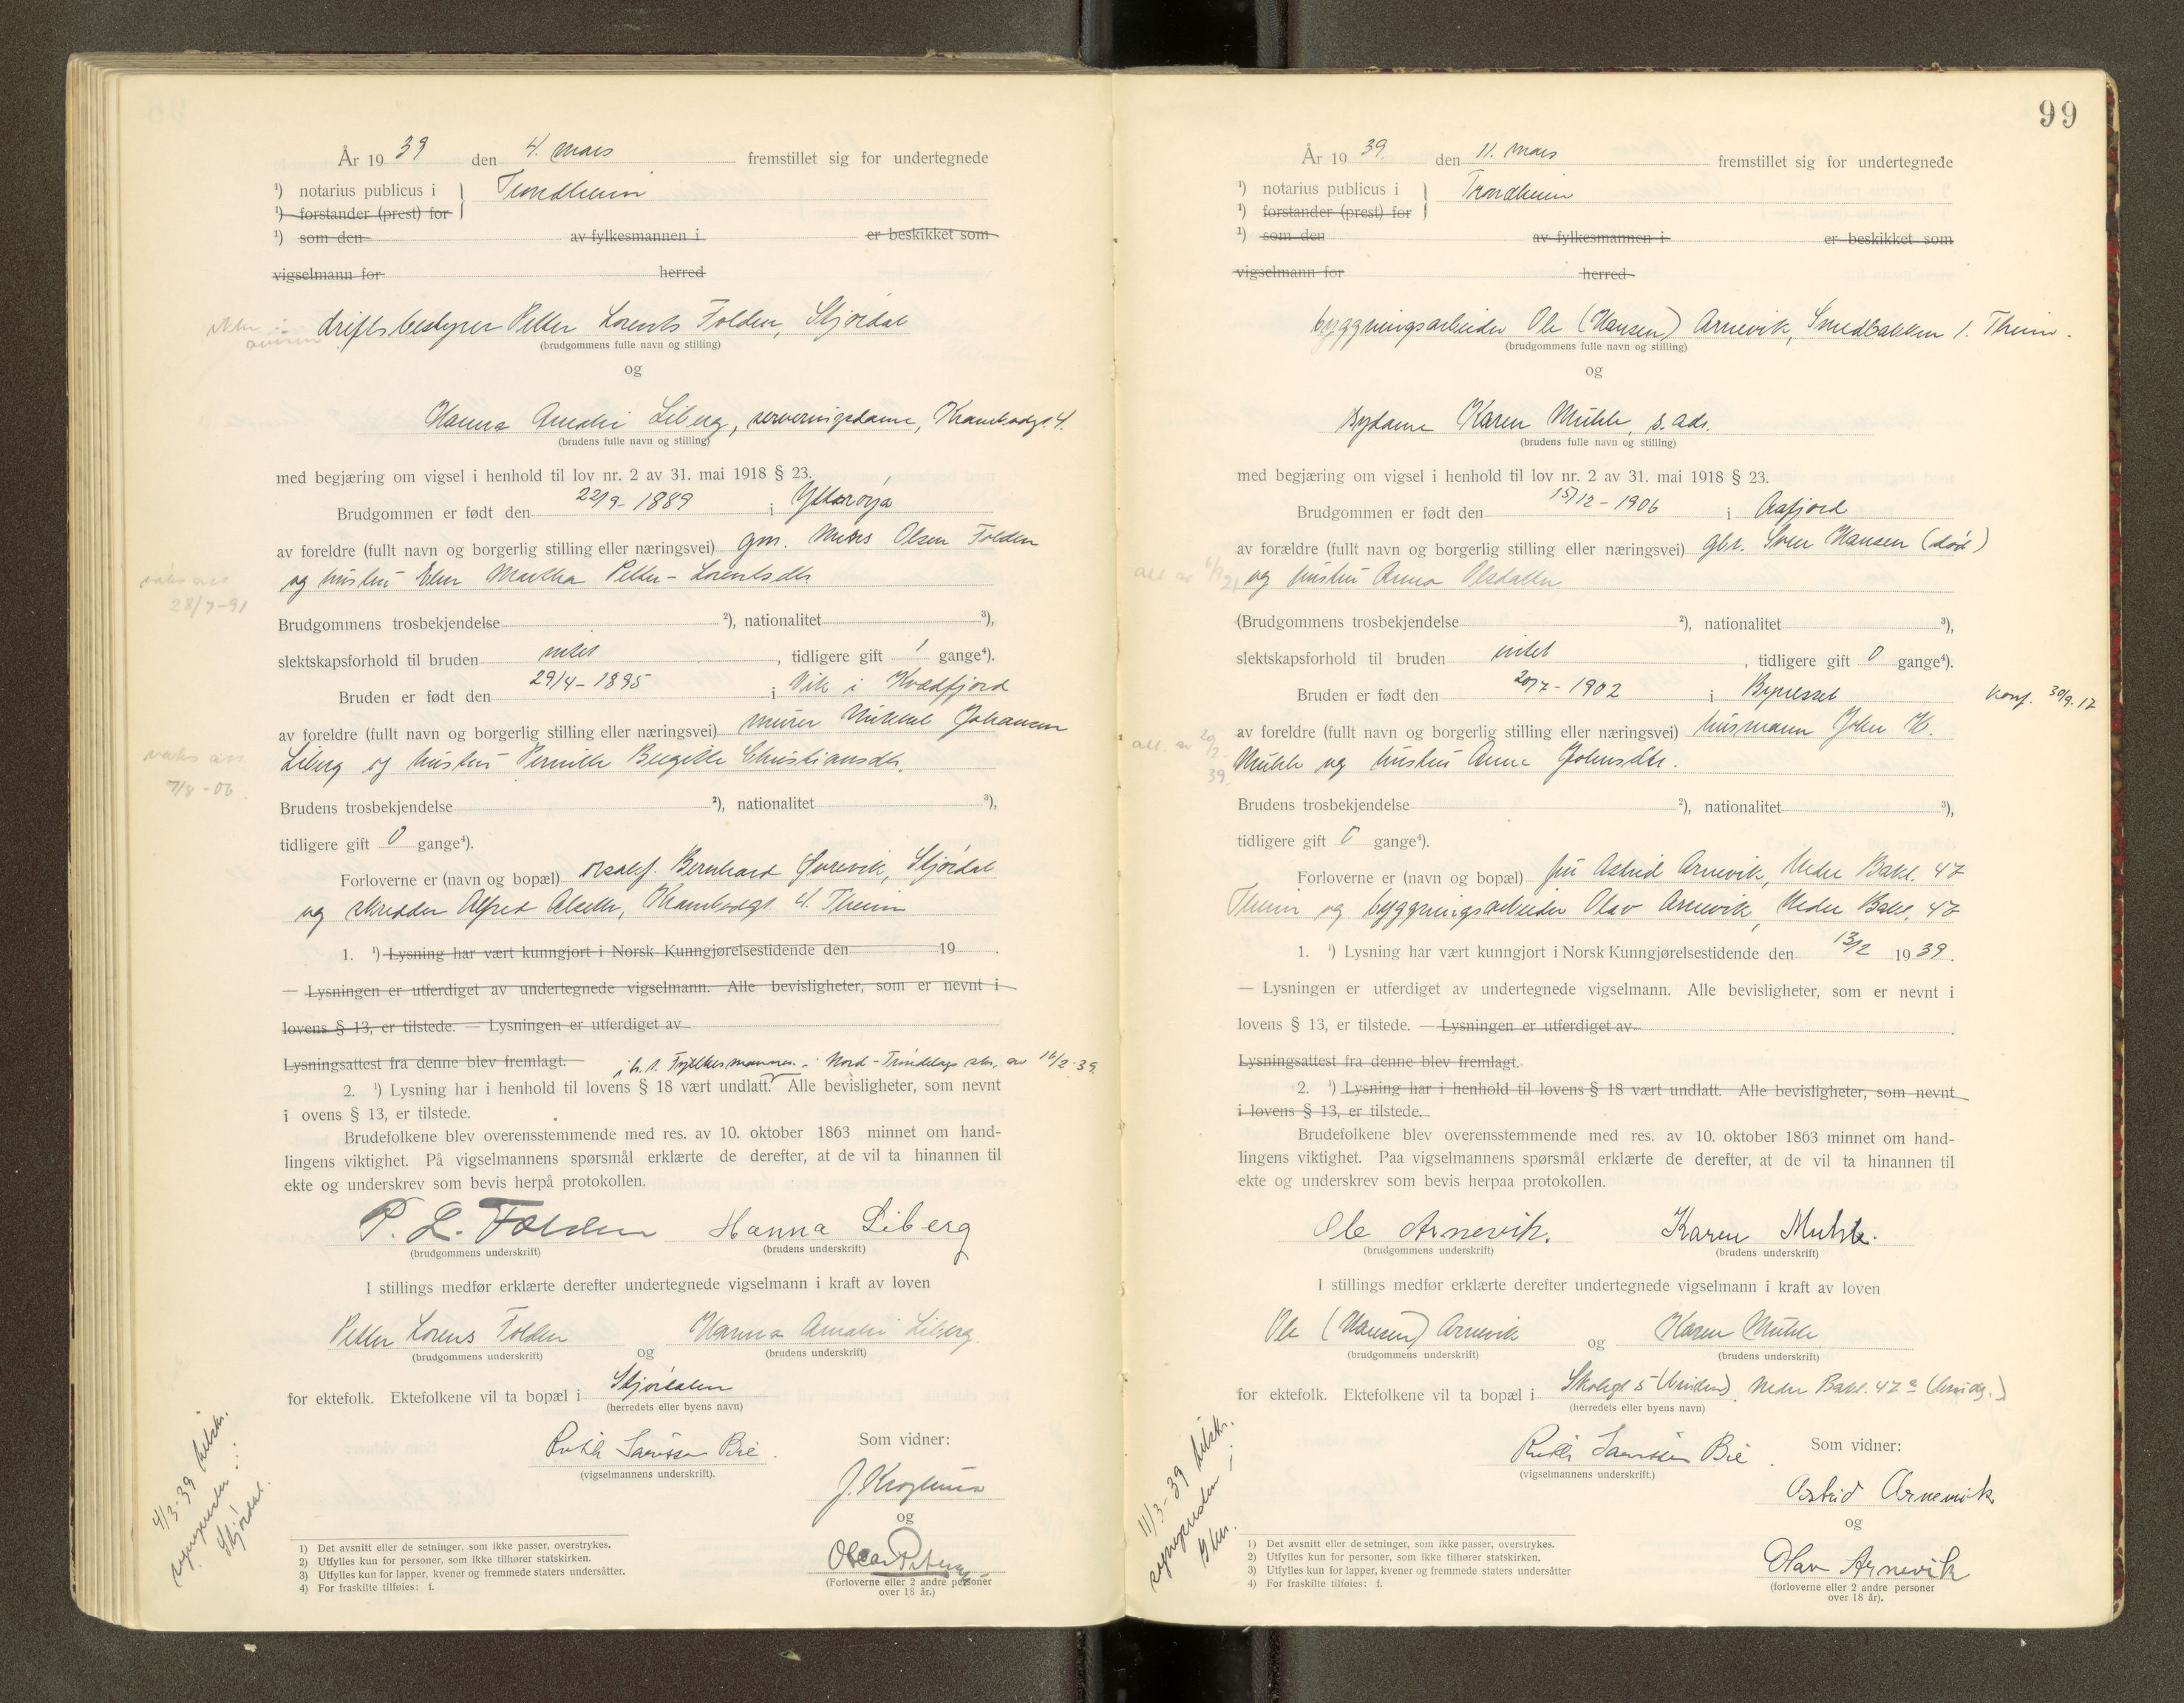 År 19 39 den 4. mars fremstillet sig for undertegnede
¹) notarius publicus i } Trondheim
¹) forstander (prest) for
¹) som den av fylkesmannen i er beskikket som
vigselmann for herred
driftsbestyrer Petter Lorents Folden, Stjørdal
(brudgommens fulle navn og stilling)
og
Hanna Amalie Liberg, serveringsdame, Krambodgt. 4.
(brudens fulle navn og stilling)
med begjæring om vigsel i henhold til lov nr. 2 av 31. mai 1918 § 23.
Brudgommen er født den 22/9-1889 i Ytterøya
av foreldre (fullt navn og borgerlig stilling eller næringsvei) gm. Olsen Folden
og hustru Elen Martha Petter-Lorentsdtr.
vaks att
28/7-91
Brudgommens trosbekjendelse ²), nationalitet ³),
slektskapsforhold til bruden intet, tidligere gift 1 gange⁴).
Bruden er født den 29/4-1895 i Vik i Kvædfjord
av foreldre (fullt navn og borgerlig stilling eller næringsvei) murer Mikkal Johansen
Liberg og hustru Pernille Birgitte Christiansdtr.
vaks att
7/8-06
Brudens trosbekjendelse ²), nationalitet ³),
tidligere gift 0 gange⁴).
Forloverne er (navn og bopæl) Bernhard Stjørdal
og skredder Alfred Krambodgt. 4. Theim
1. ¹) Lysning har vært kunngjort i Norsk Kunngjørelsestidende den 19 .
— Lysningen er utferdiget av undertegnede vigselmann. Alle bevisligheter, som er nevnt i
lovens § 13, er tilstede. — Lysningen er utferdiget av
Lysningsattest fra denne blev fremlagt. i h. t. Fylkesmannen i Nord-Trøndelags skr. av 16/2-39.
2. ¹) Lysning har i henhold til lovens § 18 vært undlatt. Alle bevisligheter, som nevnt
i ovens § 13, er tilstede.
Brudefolkene blev overensstemmende med res. av 10. oktober 1863 minnet om hand-
lingens viktighet. På vigselmannens spørsmål erklærte de derefter, at de vil ta hinannen til
ekte og underskrev som bevis herpå protokollen.
P. L. Folden Hanna Liberg
(brudgommens underskrift) (brudens underskrift)
I stillings medfør erklærte derefter undertegnede vigselmann i kraft av loven
Petter Lorens Folden og Hanna Amalie Liberg.
(brudgommens underskrift) (brudens underskrift)
for ektefolk. Ektefolkene vil ta bopæl i Stjørdalen
(herredets eller byens navn)
Som vidner:
(vigselmannens underskrift).
og
(Forloverne eller 2 andre personer
over 18 år.)
4/3-39
Stjørdal.
1) Det avsnitt eller de setninger, som ikke passer, overstrykes.
2) Utfylles kun for personer, som ikke tilhører statskirken.
3) Utfylles kun for lapper, kvener og fremmede staters undersåtter.
4) For fraskilte tilføies: f.
99
År 19 39. den 11. mars fremstillet sig for undertegnede
¹) notarius publicus i } Trondheim
¹) forstander (prest) for
¹) som den av fylkesmannen i er beskikket som
vigselmann for herred
bygningsarbeider Ole (Hansen) Arnevik, Smedbakken 1. Theim.
(brudgommens fulle navn og stilling)
og
Karen Muhle, s. adr.
(brudens fulle navn og stilling)
med begjæring om vigsel i henhold til lov nr. 2 av 31. mai 1918 § 23.
Brudgommen er født den 15/12-1906 i Aafjord
av forældre (fullt navn og borgerlig stilling eller næringsvei) gbr. Sven Hansen (død)
og hustru Anna Olsdatter
(Brudgommens trosbekjendelse ²), nationalitet ³),
slektskapsforhold til bruden intet, tidligere gift 0 gange⁴).
Bruden er født den 20/7-1902 i Bynesset
konf. 30/9.17
av foreldre (fullt navn og borgerlig stilling eller næringsvei) husmann John K.
Muhle og hustru Anne Johnsdtr.
att. av 20/2-39.
Brudens trosbekjendelse ²), nationalitet ³),
tidligere gift 0 gange⁴).
Forloverne er (navn og bopæl) fru Astrid Arnevik, Nedre Bakl. 47
Theim og bygningsarbeider Olav Arnevik, Nedre Bakl. 47
1. ¹) Lysning har vært kunngjort i Norsk Kunngjørelsestidende den 13/2 1939.
— Lysningen er utferdiget av undertegnede vigselmann. Alle bevisligheter, som er nevnt i
lovens § 13, er tilstede. — Lysningen er utferdiget av .
Lysningsattest fra denne blev fremlagt.
2. ¹) Lysning har i henhold til lovens § 18 vært undlatt. Alle bevisligheter, som nevnt
i lovens § 13, er tilstede.
Brudefolkene blev overensstemmende med res. av 10. oktober 1863 minnet om hand-
lingens viktighet. Paa vigselmannens spørsmål erklærte de derefter, at de vil ta hinannen til
ekte og underskrev som bevis herpaa protokollen.
Ole Arnevik. Karen Muhle.
(brudgommens underskrift) (brudens underskrift)
I stillings medfør erklærte derefter undertegnede vigselmann i kraft av loven
Ole (Hansen) Arnevik og Karen Muhle
(brudgommens underskrift) (brudens underskrift)
for ektefolk. Ektefolkene vil ta bopæl i Skolegt. 5 (bruden), Nedre Bakl. 47a (brudg.)
(herredets eller byens navn)
Som vidner:
(vigselmannens underskrift.)
Astrid Arnevik
og
Olav Arnevik
(forloverne eller 2 andre personer
over 18 år).
11/3-39
1) Det avsnitt eller de setninger, som ikke passer, overstrykes.
2) Utfylles kun for personer, som ikke tilhører statskirken.
3) Utfylles kun for lapper, kvener og fremmede staters undersåtter
4) For fraskilte tilføies: f.